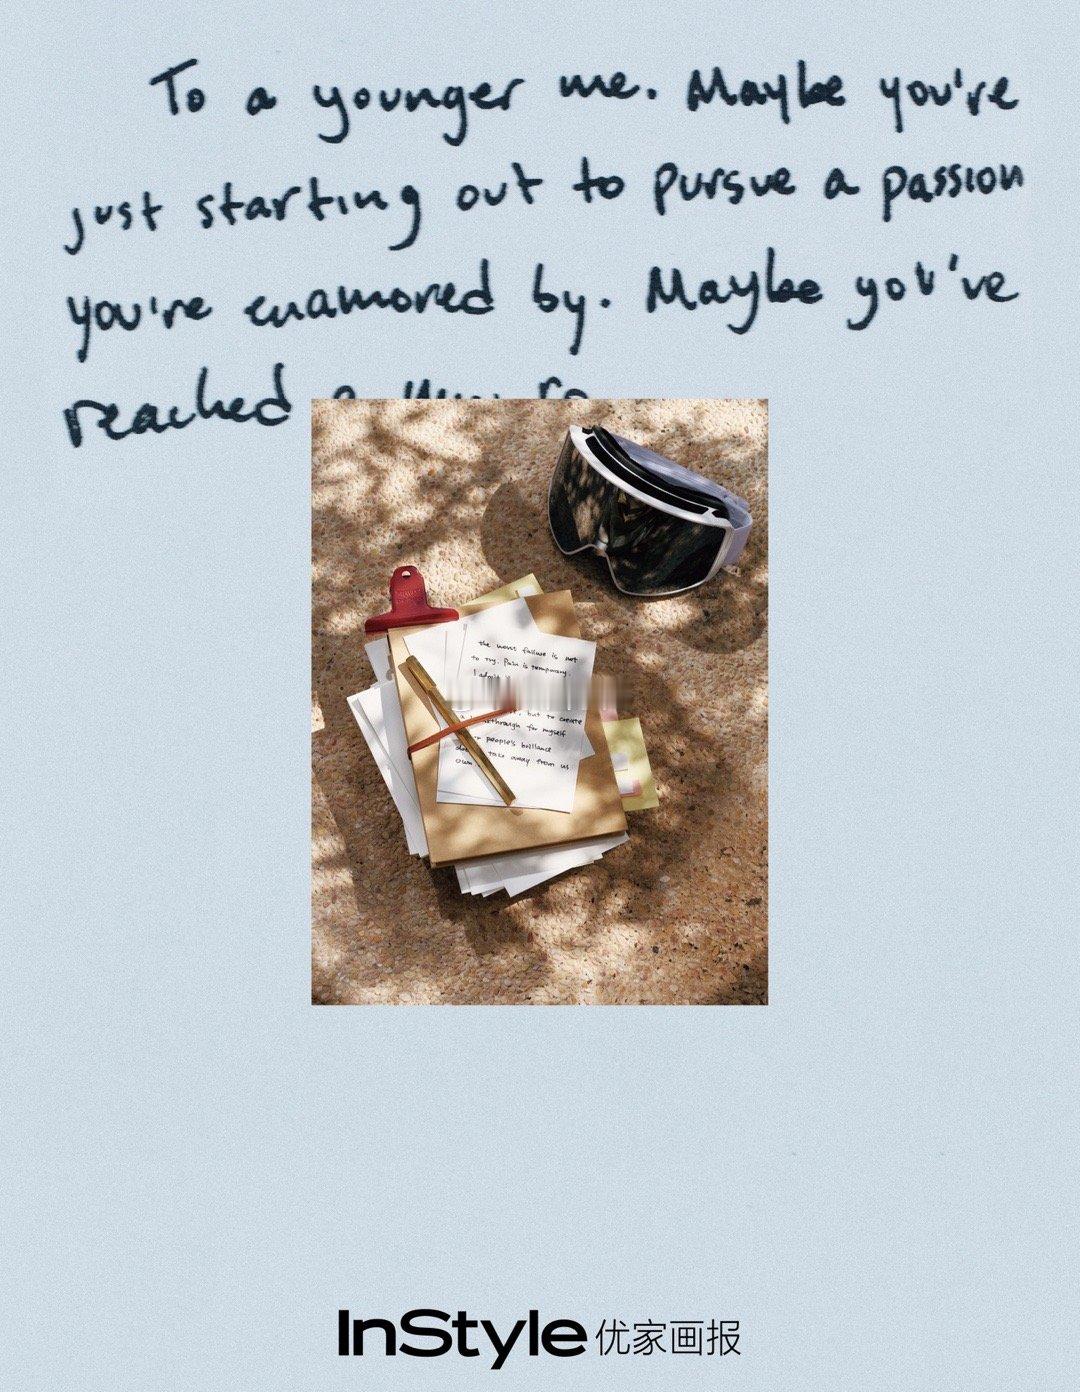 To a younger me. Maybe you're
just starting out to pursue a passion
you're enamored by. Maybe you've
reached a
the worst failure is not
to try. Pain is temporary.
I admit
, but to create
breakthrough for myself
people's brilliance
take away from us
own
InStyle 优家画报